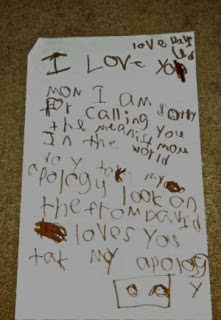 love David
I LOVE YOU
MOM I am sorry
for calling you
the meanist mom
In the world
my
apology look on
the from David
loves you
tak my apology